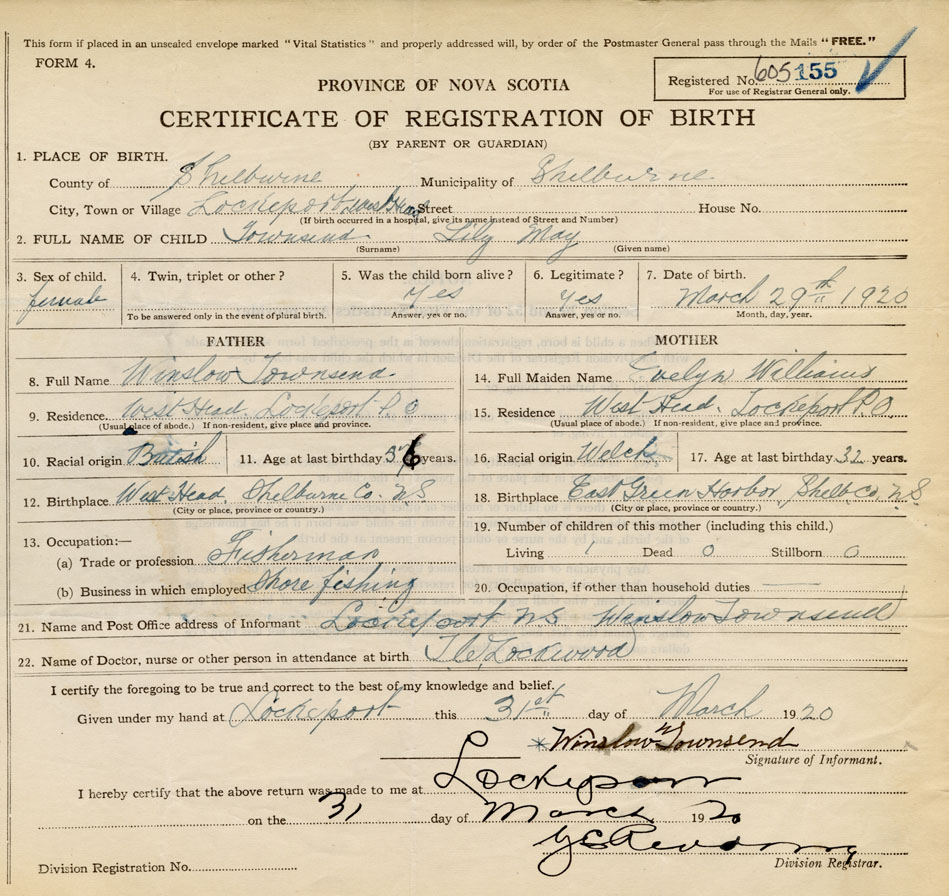 This form if placed in an unsealed envelope marked "Vital Statistics" and properly addressed will, by order of the Postmaster General pass through the Mails "FREE."
FORM 4.
Registered No. 605155
For use of Registrar General only.
PROVINCE OF NOVA SCOTIA
CERTIFICATE OF REGISTRATION OF BIRTH
(BY PARENT OR GUARDIAN)
1. PLACE OF BIRTH.
County of Shelburne Municipality of Shelburne
City, Town or Village Lockeport West Head Street House No.
(If birth occurred in a hospital, give its name instead of Street and Number)
2. FULL NAME OF CHILD Townsend Lily May
(Surname) (Given name)
3. Sex of child. 4. Twin, triplet or other? 5. Was the child born alive? 6. Legitimate? 7. Date of birth.
female Yes Yes March 29th 1920
To be answered only in the event of plural birth. Answer, yes or no. Answer, yes or no. Month, day, year.
FATHER MOTHER
8. Full Name Winslow Townsend 14. Full Maiden Name Evelyn Williams
9. Residence West Head Lockeport P.O 15. Residence West Head. Lockeport P.O.
(Usual place of abode.) If non-resident, give place and province. (Usual place of abode.) If non-resident, give place and province.
10. Racial origin British 11. Age at last birthday 36 years. 16. Racial origin Welch 17. Age at last birthday 32 years.
12. Birthplace West Head, Shelburne Co. NS 18. Birthplace East Green Harbor, Shelb Co. NS
(City or place, province or country.) (City or place, province or country.)
13. Occupation:— 19. Number of children of this mother (including this child.)
(a) Trade or profession Fisherman Living 1 Dead 0 Stillborn 0
(b) Business in which employed Shore fishing 20. Occupation, if other than household duties
21. Name and Post Office address of Informant Lockeport NS Winslow Townsend
22. Name of Doctor, nurse or other person in attendance at birth Lockwood
I certify the foregoing to be true and correct to the best of my knowledge and belief.
Given under my hand at Lockeport this 31st day of March 1920
Winslow Townsend
Signature of Informant.
I hereby certify that the above return was made to me at Lockeport
on the 31 day of March 1920
Division Registration No. Division Registrar.